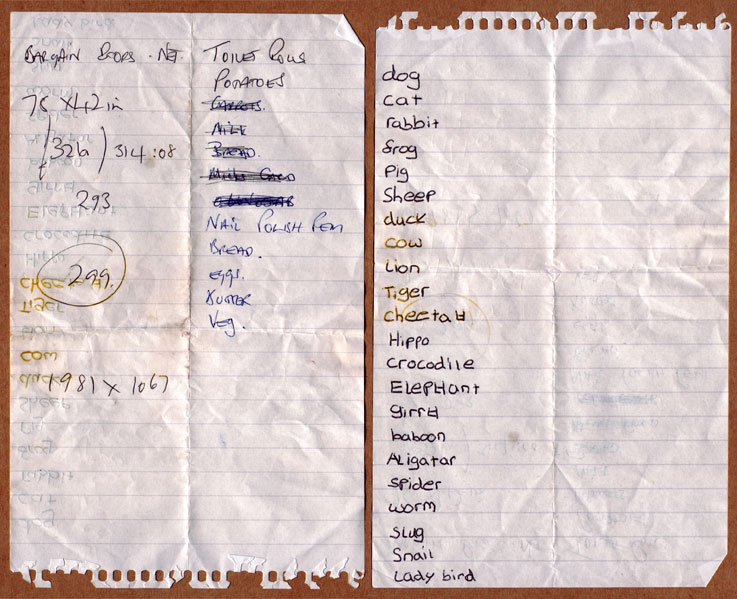 BARGAIN DOORS .NET.
78 x 42 in
(32lb) 314:08
293
299.
1981 x 1067
TOILET ROLLS
POTATOES
CARROTS.
MILK
BREAD.
NAIL POLISH REM
BREAD.
eggs.
BUTTER
Veg.
dog
cat
rabbit
frog
Pig
Sheep
duck
cow
Lion
Tiger
cheetaH
Hippo
crocodile
ElepHant
girrH
baboon
ALigatar
spider
worm
SLug
Snail
Lady bird